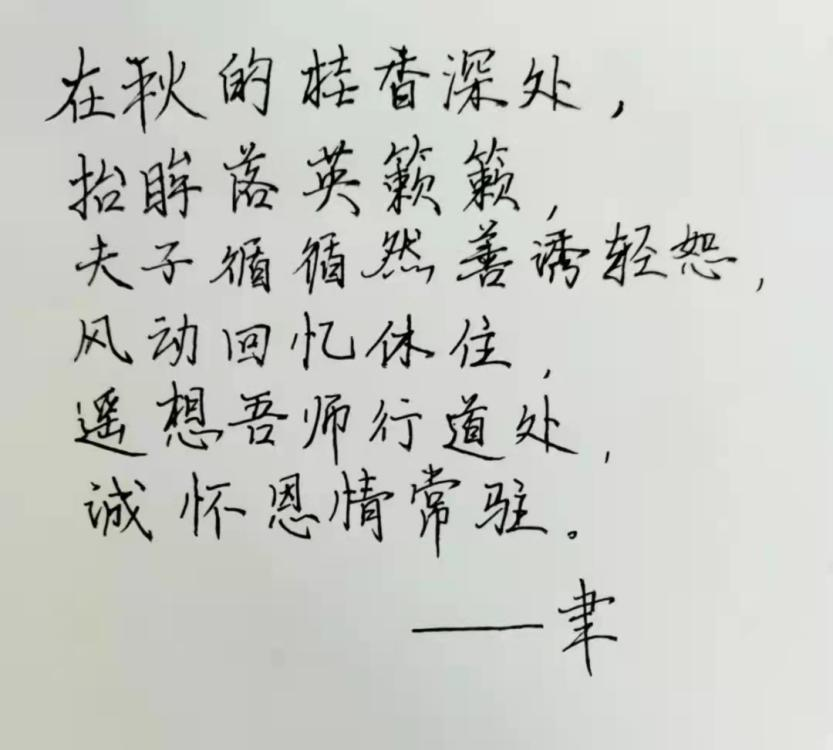 在秋的桂香深处，
抬眸落英籁籁，
夫子循循然善诱轻恕，
风动回忆休住，
遥想吾师行道处，
诚怀恩情常驻。
——聿